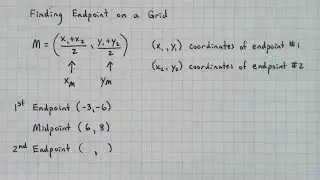 Finding Endpoint on a Grid
M = ( x₁+x₂ / 2 , y₁+y₂ / 2 )
(x₁, y₁) coordinates of endpoint #1
(x₂, y₂) coordinates of endpoint #2
↑ ↑
xₘ yₘ
1st Endpoint (-3,-6)
Midpoint (6, 8)
2nd Endpoint ( , )